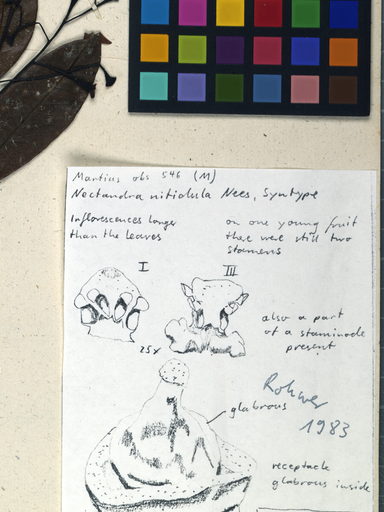 Martius obs 546 (M)
Nectandra nitidula Nees, Syntype
Inflorescences longer
than the leaves
on one young fruit
there were still two
stamens
I
III
also a part
of a staminode
present
25x
Rohwer
1983
glabrous
receptacle
glabrous inside